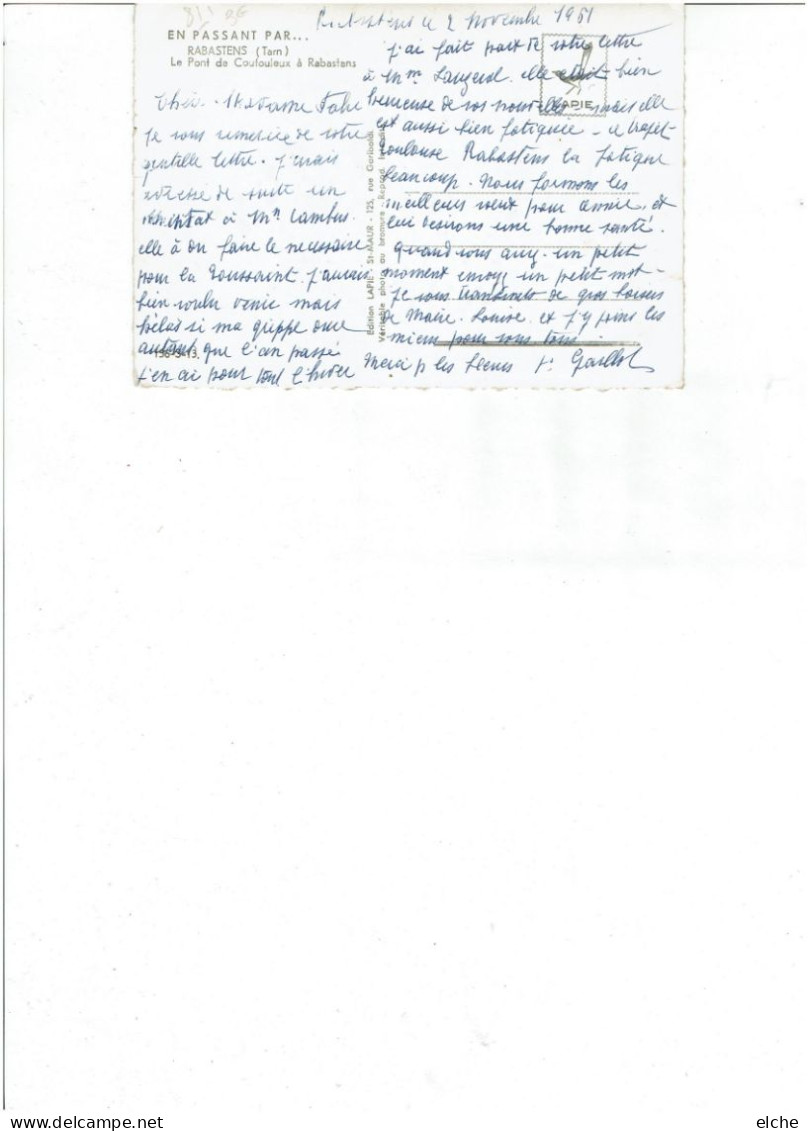 EN PASSANT PAR...
RABASTENS (Tarn)
Le Pont de Coufouleux à Rabastens
Rabastens le 2 Novembre 1951
Chère Madame
Je vous remercie de votre
gentille lettre. J'avais
adressé de suite un
mandat à Mme Cambus.
elle a dû faire le nécessaire
pour la Toussaint. J'aurais
bien voulu venir mais
hélas si ma grippe dure
autant que l'an passé
j'en ai pour tout l'hiver
Edition LAPIE - St-MAUR - 125, rue Garibaldi
Véritable photo au bromure - Reprod. Interdite
LAPIE
j'ai fait part de votre lettre
à Mme elle était bien
heureuse de vos nouvelles, mais elle
est aussi bien fatiguée - le trajet
Toulouse Rabastens la fatigue
beaucoup. Nous formons les
meilleurs vœux pour et
lui désirons une bonne santé.
Quand vous aurez un petit
moment envoyez un petit mot -
Je vous transmets de gros baisers
de Marie Louise et j'y joins les
miens pour vous tous.
Merci p les fleurs
elche